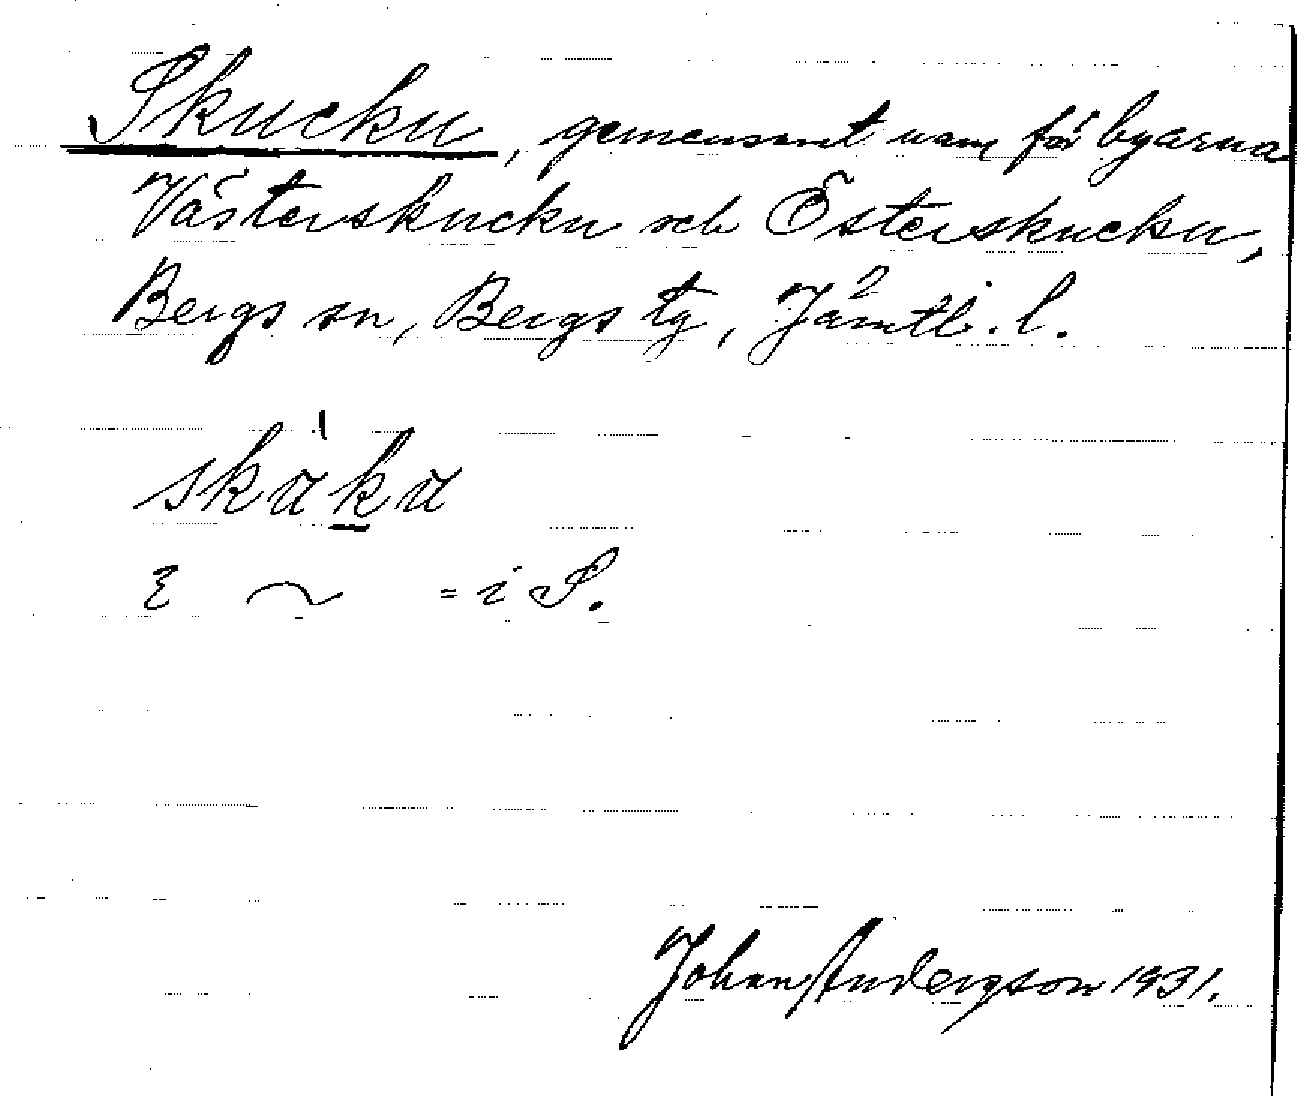 Skucku, gemensamt namn för byarna
Västerskucku och Österskucku,
Bergs sn, Bergs tg, Jämtl. l.
skàka
ɛ ~ = i S.
Johan Anderzson 1931.